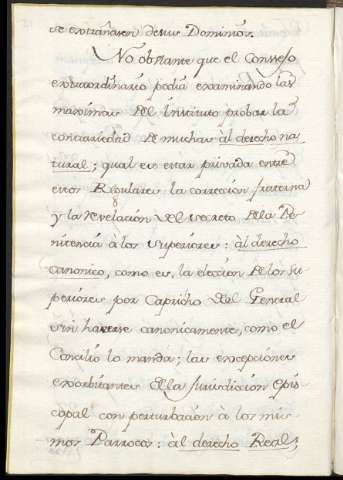 se extrañasen de sus Dominios.
No obstante que el Consejo
extraordinario podia examinando las
maximas del Instituto probar la
contrariedad de muchas àl derecho na
tural; qual es estar privada entre
estos Regulares la correccion fraterna
y la revelacion del secreto de la Pe
nitencia à los superiores: àl derecho
canonico, como es, la eleccion de los su
periores por Capricho del General
sin hacerse canonicamente, como el
Concilio lo manda; las excepciones
exorbitantes de la Jurisdicion Epis
copal con perturbacion à los mis
mos Parrocos: àl derecho Real,